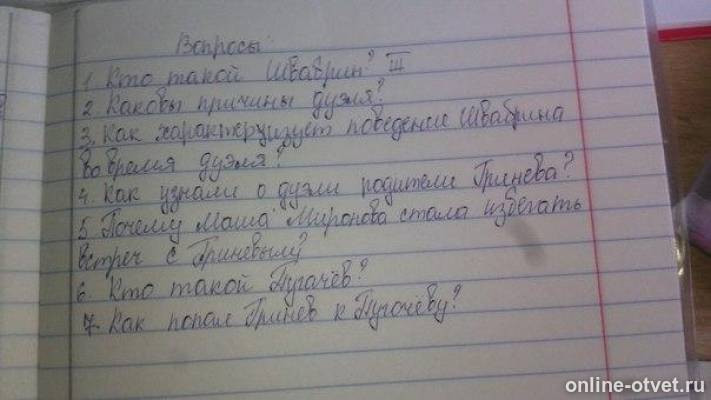 Вопросы:
1. Кто такой Швабрин? III
2. Каковы причины дуэля?
3. Как характеризует поведение Швабрина
во время дуэля?
4. Как узнали о дуэли родители Гринева?
5. Почему Маша Миронова стала избегать
встреч с Гриневым?
6. Кто такой Пугачёв?
7. Как попал Гринев к Пугочёву?
online-otvet.ru